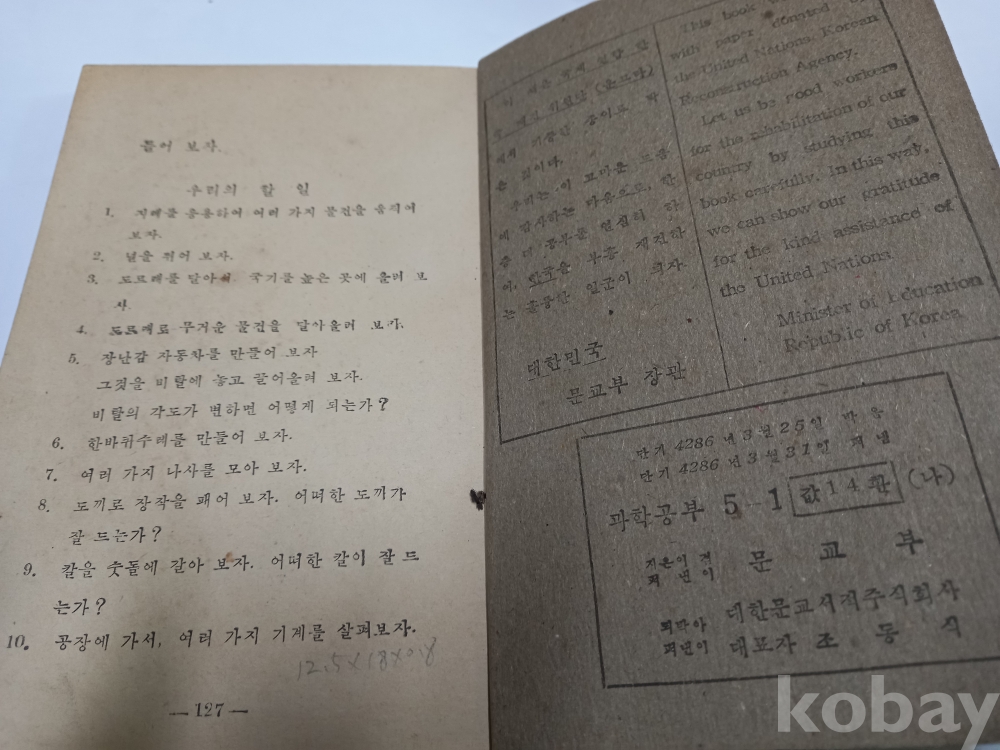 틀어 보자.
우리의 할 일
1. 지레를 응용하여 여러 가지 물건을 움직여
보자.
2. 널을 뛰어 보자.
3. 도르래를 달아서 국기를 높은 곳에 올려 보
자.
4. 도르래로 무거운 물건을 달아올려 보자.
5. 장난감 자동차를 만들어 보자
그것을 비탈에 놓고 끌어올려 보자.
비탈의 각도가 변하면 어떻게 되는가?
6. 한바퀴수레를 만들어 보자.
7. 여러 가지 나사를 모아 보자.
8. 도끼로 장작을 패어 보자. 어떠한 도끼가
잘 드는가?
9. 칼을 숫돌에 갈아 보자. 어떠한 칼이 잘 드
는가?
10. 공장에 가서, 여러 가지 기계를 살펴보자.
12.5×18×0.8
— 127 —
이 책은 국제 연합 한
국 재건 위원단 (운끄라)
에서 기증한 종이로 박
은 것이다.
우리는 이 고마운 도움
에 감사하는 마음으로, 한
층 더 공부를 열심히 하
여, 한국을 부흥 재건하
는 훌륭한 일군이 되자.
대한민국
문교부 장관
This book
with paper donated
the United Nations, Korean
Reconstruction Agency.
Let us be good workers
for the rihabilitation of our
country by studying this
book carefully. In this way,
we can show our gratitude
for the kind assistance of
the United Nations.
Minister of Education
Republic of Korea
단기 4286 년 3 월 25 일 박음
단기 4286 년 3 월 31 일 펴냄
과학공부 5—1 값 14 환 (나)
지은이 겸
펴낸이 문교부
박아
펴낸이 대한문교서적주식회사
대표자 조 동 식
kobay